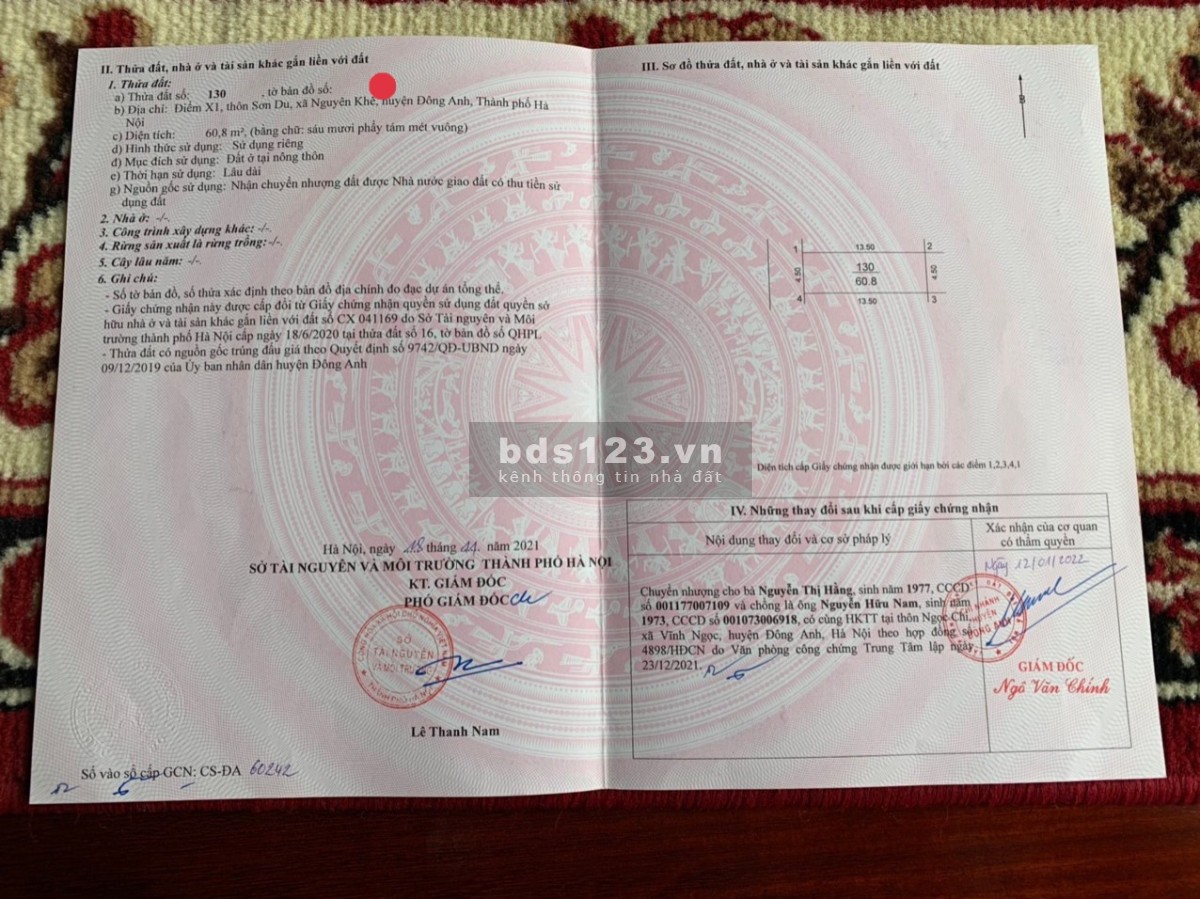 II. Thửa đất, nhà ở và tài sản khác gắn liền với đất
1. Thửa đất:
a) Thửa đất số: 130 , tờ bản đồ số:
b) Địa chỉ: Điểm X1, thôn Sơn Du, xã Nguyên Khê, huyện Đông Anh, Thành phố Hà
Nội
c) Diện tích: 60,8 m², (bằng chữ: sáu mươi phẩy tám mét vuông)
d) Hình thức sử dụng: Sử dụng riêng
đ) Mục đích sử dụng: Đất ở tại nông thôn
e) Thời hạn sử dụng: Lâu dài
g) Nguồn gốc sử dụng: Nhận chuyển nhượng đất được Nhà nước giao đất có thu tiền sử
dụng đất
2. Nhà ở: -/-.
3. Công trình xây dựng khác: -/-.
4. Rừng sản xuất là rừng trồng:-/-.
5. Cây lâu năm: -/-.
6. Ghi chú:
- Số tờ bản đồ, số thửa xác định theo bản đồ địa chính đo đạc dự án tổng thể.
- Giấy chứng nhận này được cấp đổi từ Giấy chứng nhận quyền sử dụng đất quyền sở
hữu nhà ở và tài sản khác gắn liền với đất số CX 041169 do Sở Tài nguyên và Môi
trường thành phố Hà Nội cấp ngày 18/6/2020 tại thửa đất số 16, tờ bản đồ số QHPL
- Thửa đất có nguồn gốc trúng đấu giá theo Quyết định số 9742/QĐ-UBND ngày
09/12/2019 của Ủy ban nhân dân huyện Đông Anh
Hà Nội, ngày 18 tháng 11. năm 2021
SỞ TÀI NGUYÊN VÀ MÔI TRƯỜNG THÀNH PHỐ HÀ NỘI
KT. GIÁM ĐỐC
PHÓ GIÁM ĐỐC
SỞ
TÀI NGUYÊN
VÀ MÔI TRƯỜNG
Lê Thanh Nam
Số vào sổ cấp GCN: CS-ĐA 60242
III. Sơ đồ thửa đất, nhà ở và tài sản khác gắn liền với đất
B
1 13.50 2
4.50 130 4.50
60.8
4 13.50 3
bds123.vn
kênh thông tin nhà đất
Diện tích cấp Giấy chứng nhận được giới hạn bởi các điểm 1,2,3,4,1
IV. Những thay đổi sau khi cấp giấy chứng nhận
Nội dung thay đổi và cơ sở pháp lý
Xác nhận của cơ quan
có thẩm quyền
Chuyển nhượng cho bà Nguyễn Thị Hằng, sinh năm 1977, CCCD
số 001177007109 và chồng là ông Nguyễn Hữu Nam, sinh năm
1973, CCCD số 001073006918, có cùng HKTT tại thôn Ngọc Chi,
xã Vĩnh Ngọc, huyện Đông Anh, Hà Nội theo hợp đồng số
4898/HĐCN do Văn phòng công chứng Trung Tâm lập ngày
23/12/2021.
Ngày 12/01/2022
CHI NHÁNH
HUYỆN
ĐÔNG ANH
GIÁM ĐỐC
Ngô Văn Chính